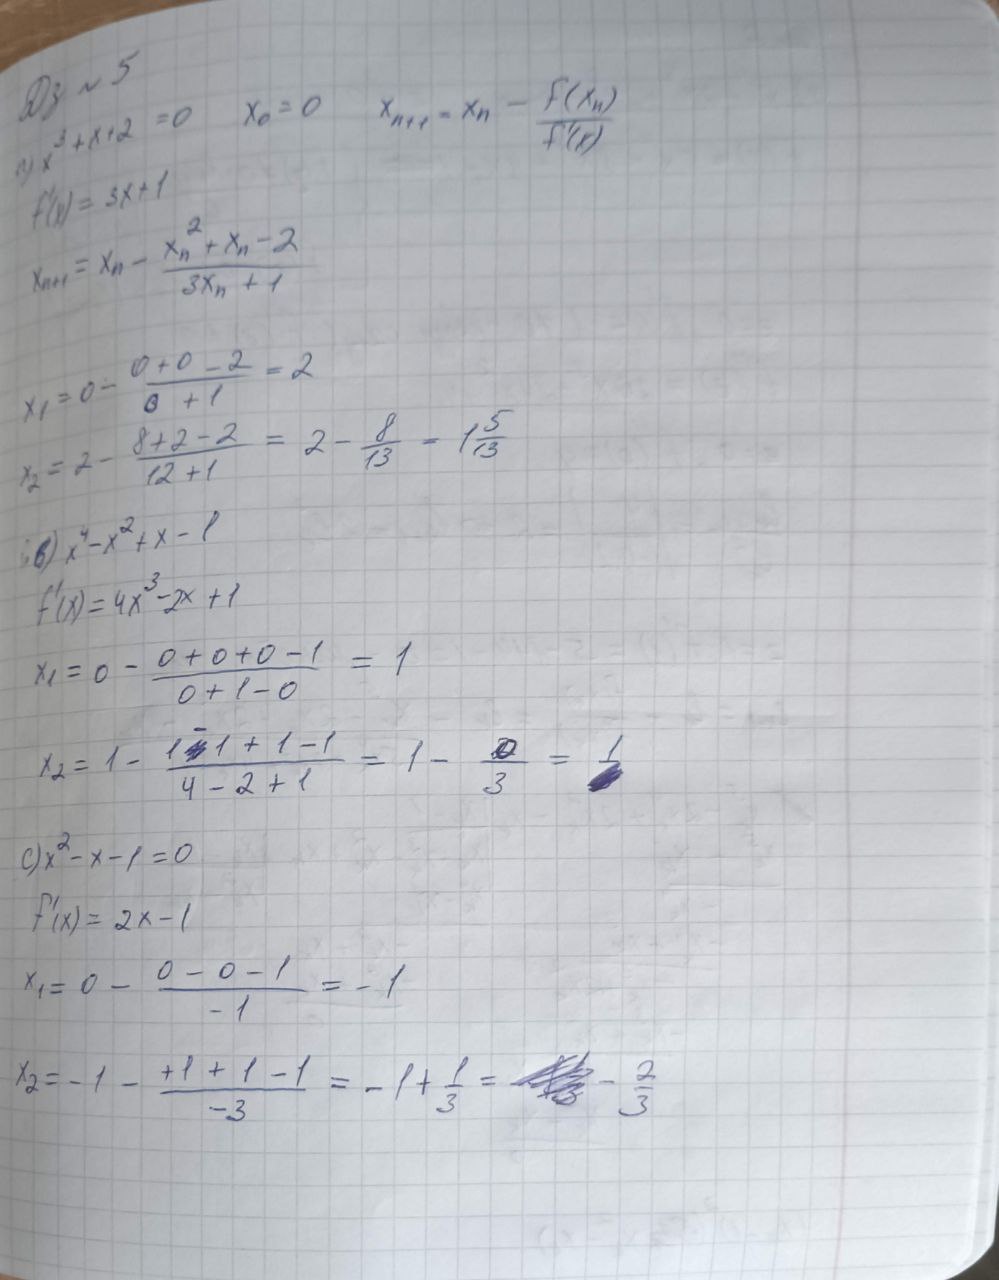 Дз № 5
a) x³ + x + 2 = 0 x₀ = 0 xₙ₊₁ = xₙ - f(xₙ)/f'(x)
f'(x) = 3x + 1
xₙ₊₁ = xₙ - (xₙ² + xₙ - 2)/(3xₙ + 1)
x₁ = 0 - (0 + 0 - 2)/(0 + 1) = 2
x₂ = 2 - (8 + 2 - 2)/(12 + 1) = 2 - 8/13 = 1 5/13
в) x⁴ - x² + x - 1
f'(x) = 4x³ - 2x + 1
x₁ = 0 - (0 + 0 + 0 - 1)/(0 + 1 - 0) = 1
x₂ = 1 - (1 - 1 + 1 - 1)/(4 - 2 + 1) = 1 - 0/3 = 1
c) x² - x - 1 = 0
f'(x) = 2x - 1
x₁ = 0 - (0 - 0 - 1)/(-1) = -1
x₂ = -1 - (+1 + 1 - 1)/(-3) = -1 + 1/3 = - 2/3